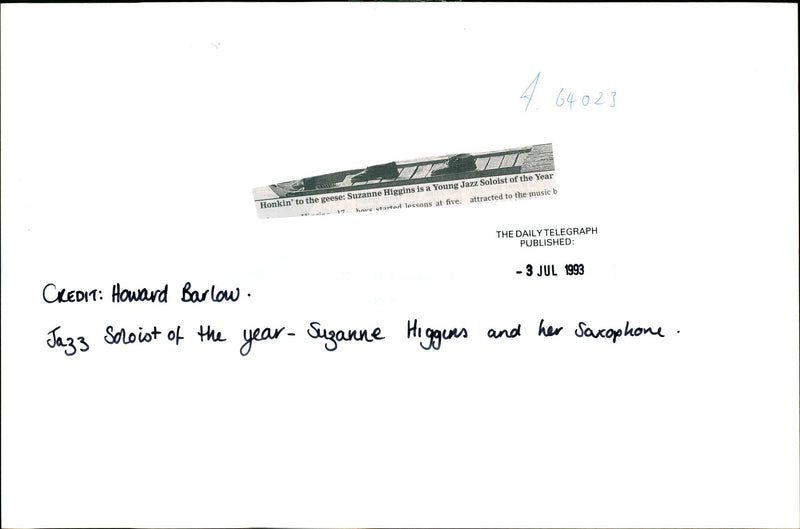 A. 64023
Honkin' to the geese: Suzanne Higgins is a Young Jazz Soloist of the Year
Higgins, 17, boys started lessons at five. attracted to the music b
THE DAILY TELEGRAPH
PUBLISHED:
- 3 JUL 1993
CREDIT: Howard Barlow.
Jazz Soloist of the year - Suzanne Higgins and her Saxophone.